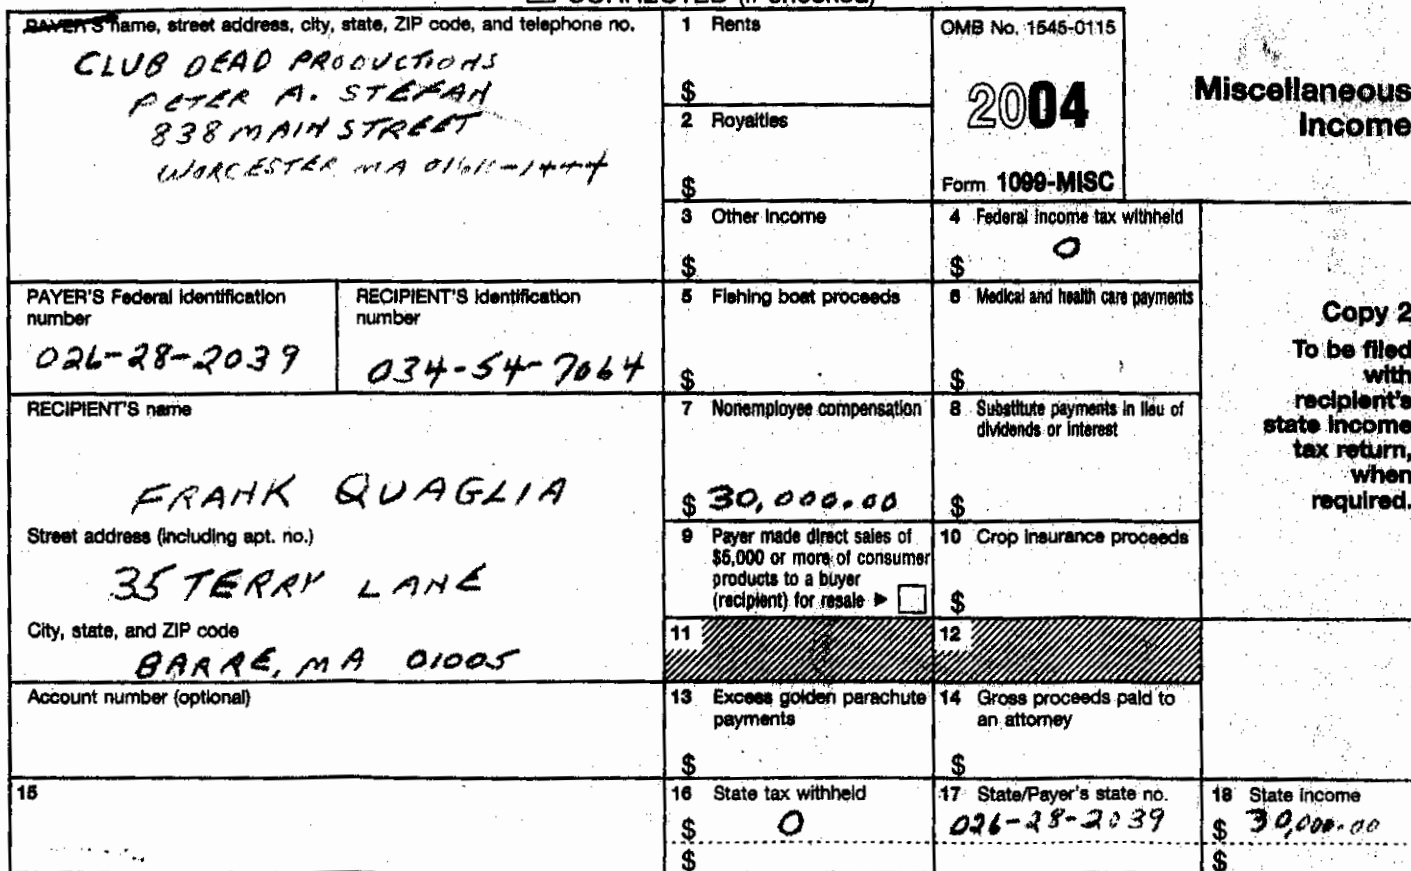 CORRECTED (if checked)
PAYER'S name, street address, city, state, ZIP code, and telephone no.
CLUB DEAD PRODUCTIONS
PETER A. STEFAN
838 MAIN STREET
WORCESTER MA
1 Rents
$
2 Royalties
$
OMB No. 1545-0115
2004
Form 1099-MISC
Miscellaneous
Income
3 Other Income
$
4 Federal income tax withheld
$ 0
PAYER'S Federal identification
number
026-28-2039
RECIPIENT'S identification
number
034-54-7064
5 Fishing boat proceeds
$
6 Medical and health care payments
$
Copy 2
To be filed
with
recipient's
state income
tax return,
when
required.
RECIPIENT'S name
FRANK QUAGLIA
7 Nonemployee compensation
$ 30,000.00
8 Substitute payments in lieu of
dividends or interest
$
Street address (including apt. no.)
35 TERRY LANE
9 Payer made direct sales of
$5,000 or more of consumer
products to a buyer
(recipient) for resale ►
10 Crop insurance proceeds
$
City, state, and ZIP code
BARRE, MA 01005
11
12
Account number (optional)
13 Excess golden parachute
payments
$
14 Gross proceeds paid to
an attorney
$
15
16 State tax withheld
$ 0
$
17 State/Payer's state no.
026-28-2039
18 State income
$ 30,000.00
$